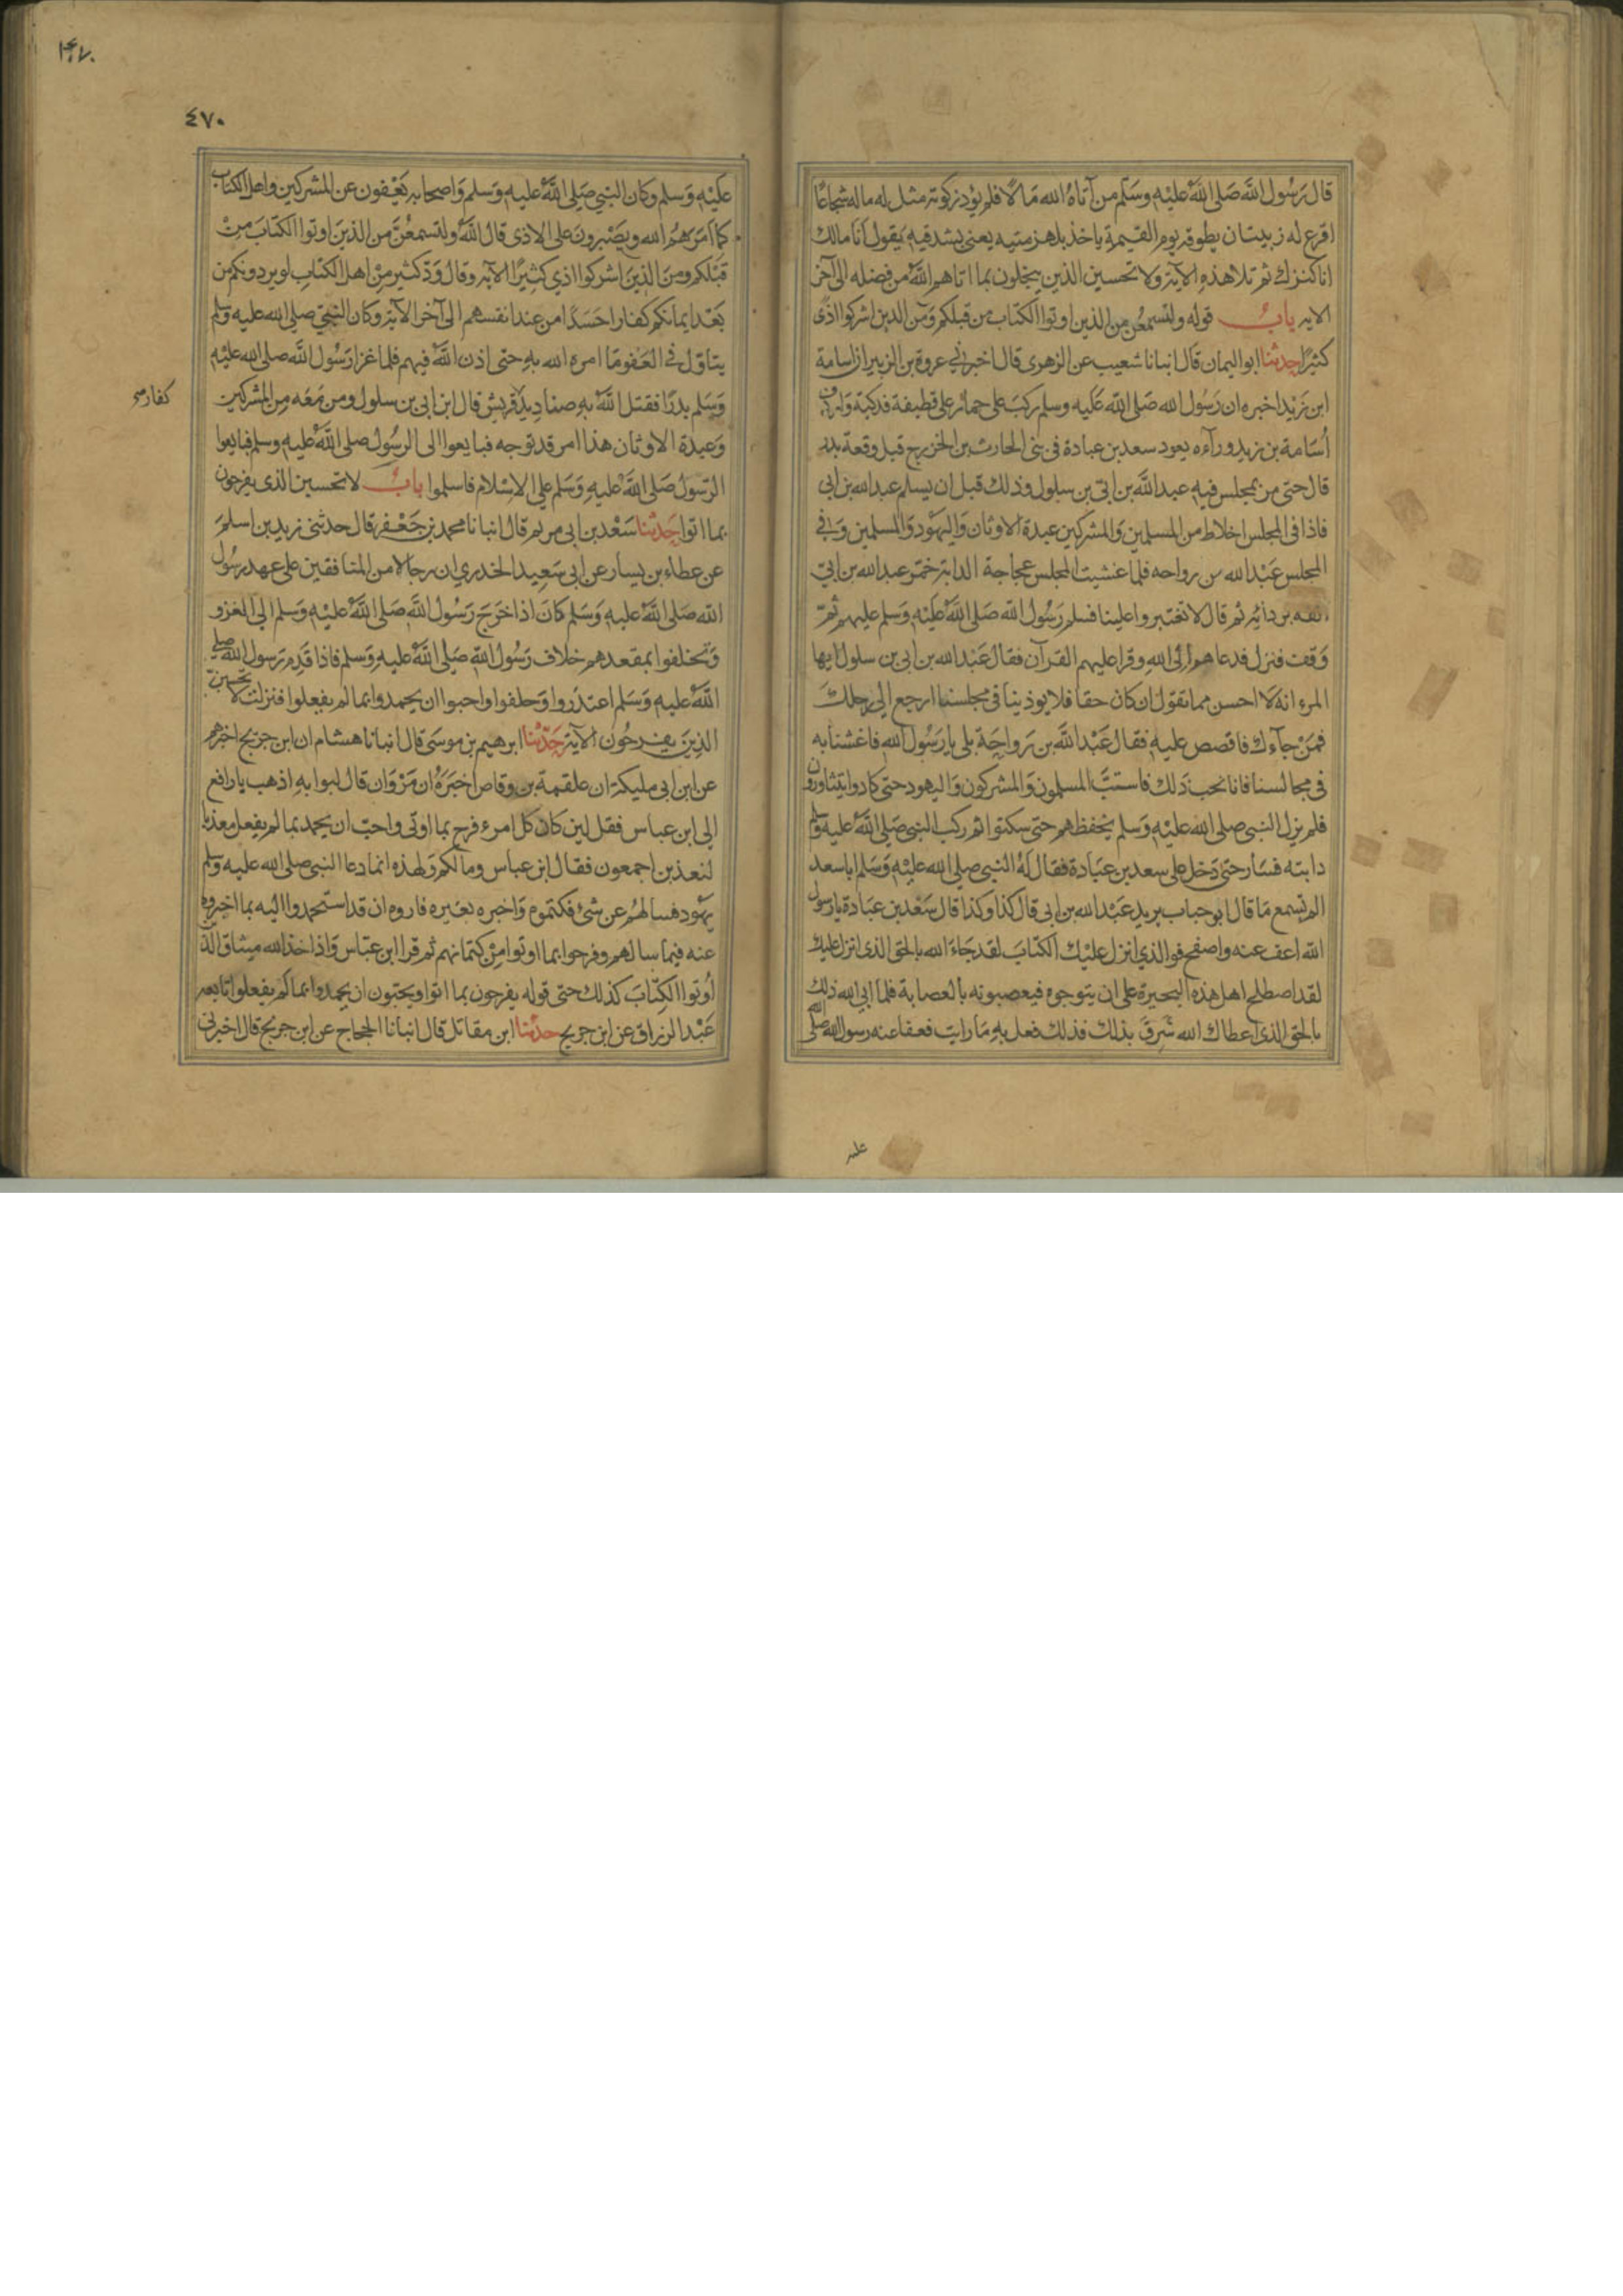 قال رَسُول الله صَلى الله عليْه وسَلم من آتاهُ الله مَالا فلم يؤد زكوته مثل له ماله شجاعًا
اقرع له زبيبتان يطوقه يوم القيمة ياخذ بلهزمتيه يعني بشدقيه يَقول اَنا مالك
انا كنزك ثم تلا هذه الآية ولا تحسبن الذين يبخلون بما اتاهم اللهُ من فضله الى آخر
الايه باب قوله ولتسمعُن من الذين اوتوا الكتاب من قبلكم ومن الذين اشركوا اذًى
كثيرًا حدثنا ابو اليمان قال انبانا شعيب عن الزهرى قال اخبرني عروة بن الزبير ان اسامة
ابن زَيْد اخبره ان رَسُول الله صَلى الله عَليه وسلم ركبَ على حمار على قطيفة فدكية وَاردف
اُسَامة بن زيد ورآءه يعود سعد بن عبادة فى بنى الحارث بن الخزرج قبل وقعة بدر
قال حتى مر بمجلس فيه عبد الله بن ابى بن سلول وذلك قبل ان يسلم عبد الله بن ابى
فاذا فى المجلس اخلاط من المسلمين وَالمشركين عبدة الاوثان وَاليهَود وَالمسلمين وَفي
المجلس عَبْد الله بن رواحه فلما غشيت المجلس عجاجة الدابة خمّر عبد الله بن ابىّ
انفه بردائه ثم قال لا تغبروا علينا فسلم رَسُول الله صَلى اللهُ عَليْه وَسَلم عليهم ثمّ
وَقف فنزل فدعاهم اِلى اللهِ وقرا عليهم القرآن فقال عَبْد الله بن ابى بن سلول ايها
المرء انه لا احسن مما تقول ان كان حقا فلا يوذينا فى مجلسنا ارجع الى رحلك
فمَنْ جآءك فاقصص عليه فقال عَبْد اللهَ بن رَواحَة بلى يا رَسُول الله فاغشنا به
فى مجالسنا فانا نحب ذلك فاستبَّ المسلمون وَالمشركون وَاليهود حتى كادوا يتثاورون
فلم يزل النبى صلى الله عليْه وَسَلم يخفظهم حتى سكتوا ثم ركب النبى صَلى اللهُ عليه وَسلم
دابته فسَار حتى دَخل على سعد بن عبَادة فقال لهُ النبى صلى الله عليْه وَسَلم يا سعد
الم تسمع مَا قال ابو حباب يريد عَبْد الله بن ابى قال كذا وكذا قال سَعْد بن عبَادة يا رسول
الله اعف عنه واصفح فوالذي انزل عليْك الكتابَ لقد جَاءَ الله بالحق الذى انزل عليك
لقد اصطلح اهل هذه البحيرة على ان يتوجوه فيعصبونه بالعصابة فلما ابى الله ذلك
بالحق الذى اعطاك الله شَرِقَ بذلك فذلك فعل به مَا رايت فعفا عنه رسول الله صلى الله
عليه
٤٧٠
عَليْه وَسلم وكان النبي صَلى اللهُ عليه وَسَلم وَاصحابه يَعْفون عن المشركين واهل الكتاب
كما اَمَرَهُم الله ويصْبرونَ على الاذى قال اللهُ ولتسمعُنَّ من الذينَ اوتوا الكتابَ مِنْ
قبْلكم ومنَ الذينَ اشركوا اذي كثِيرًا الآيه وقال وَدّ كثير مِن اهل الكتابِ لو يردونكم من
بَعْد ايمانكم كفارا حَسَدًا من عند انفسهم الى آخر الآية وكان النبيّ صلى الله عليه وَسلم
يتاوّل فى العَفو مَا امره الله به حتى اذن اللهُ فيهم فلما غزا رَسُول الله صلى الله عليْه
وَسَلم بدرًا فقتل اللهُ بهِ صناديدَ قريش قال ابن ابى بن سلول ومن مَعَه مِن المشركين
كفار
وَعبدة الاوثان هذا امر قد توجه فبايعوا الى الرسُول صلى اللهُ عليه وسلم فبايعوا
الرّسولَ صَلى اللهُ عليهِ وَسَلم على الاِسْلام فاسلموا باب لا تحسبن الذى يفرحون
بما اتوا حَدثنا سَعْد بن ابى مريم قال انبانا محمد بن جَعْفر قال حدثنى زيد بن اسلم
عن عطاء بن يسار عن ابى سَعِيد الخدري ان رجالا من المنافقين على عهد رسُول
الله صَلى اللهُ عليه وَسَلم كانَ اذا خرَجَ رَسُول اللهَ صَلى اللهُ عليْهِ وَسلم الى الغزو
وَتخلفوا بمقعدهم خلاف رَسُول اللهِ صَلى اللهُ عليهِ وَسَلم فاذا قدِم رَسول الله صلى
اللهُ عليه وَسَلم اعتذروا وَحلفوا واحبوا ان يحمدوا بما لم يفعلوا فنزلت لا تحسبنّ
الذِينَ يفرحُون الآية حَدثنا ابرهيم بن موسَى قال انبانا هشام ان ابن جريج اخبرهم
عن ابن ابى مليكة ان علقمة بن وقاص اخبَرَهُ ان مَرْوَان قال لبوابهِ اذهب يا رافع
الى ابن عباس فقل لين كان كل امرء فرح بما اوتى واحبّ ان يحمد بما لم يفعل معذبا
لنعذبن اجمعون فقال ابن عباس وما لكم وَلهذه انما دعا النبى صلى الله عليه وسلم
يهَود فسالهُم عن شئ فكتموه وَاخبره بغيره فاروه ان قد استحمدوا اليه بما اخبروه
عنه فيما سالهم وفرحوا بما اوتوا مِنْ كتمانهم ثم قرا ابن عبّاس وَاذ اخذ الله ميثاق الذين
اُوتوا الكِتابَ كذلك حتى قوله يفرحون بما اتوا ويحبون ان يحمدوا بما لم يفعلوا تابعه
عَبْد الرزاق عن ابن جريج حدثنا ابن مقاتل قال انبانا الحجاج عن ابن جريج قال اخبرنى